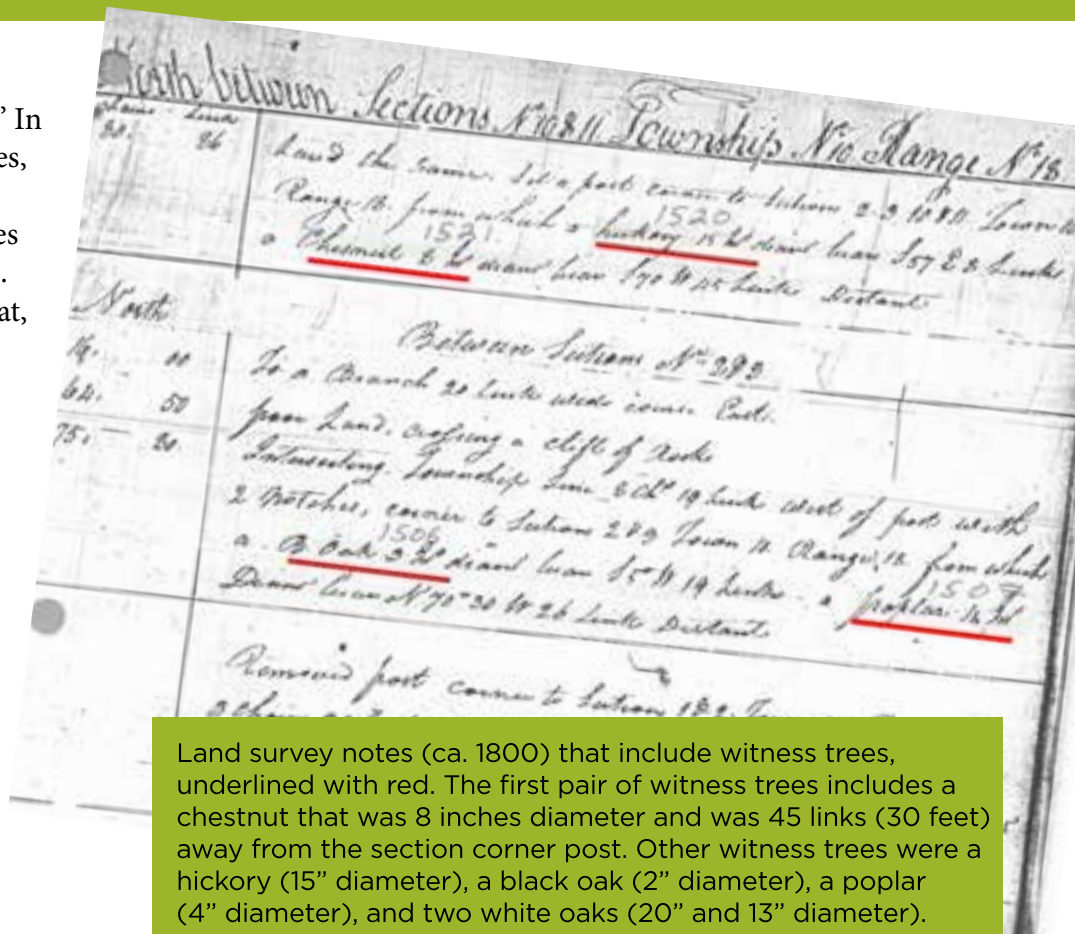 ” In
es,
es
.
at,
North between Sections N 10 & 11 Township N 10 Range N 18
Chains Links
26
Land the same. Set a post corner to Sections 2-3 10 & 11 Town
1520
Range from which a hickory 15 In diam bears S 57 E 8 Links
1521
a Chesnut 8 In diam bears S 70 W 45 Links Distant
North
Between Sections N 2 & 3
00
To a Branch 20 Links wide course East.
64. 50
poor Land, crossing a clift of Rocks
75.
Intersecting Township Line 19 Links west of post with
2 Notches, corner to Section 2 & 3 Town Range from which
a B Oak diam bears S 5 W 19 Links - a poplar
Diam bears N 70 30 W 26 Links Distant
Removed post corner to Section 1 & 2
3 Chains
Land survey notes (ca. 1800) that include witness trees,
underlined with red. The first pair of witness trees includes a
chestnut that was 8 inches diameter and was 45 links (30 feet)
away from the section corner post. Other witness trees were a
hickory (15” diameter), a black oak (2” diameter), a poplar
(4” diameter), and two white oaks (20” and 13” diameter).